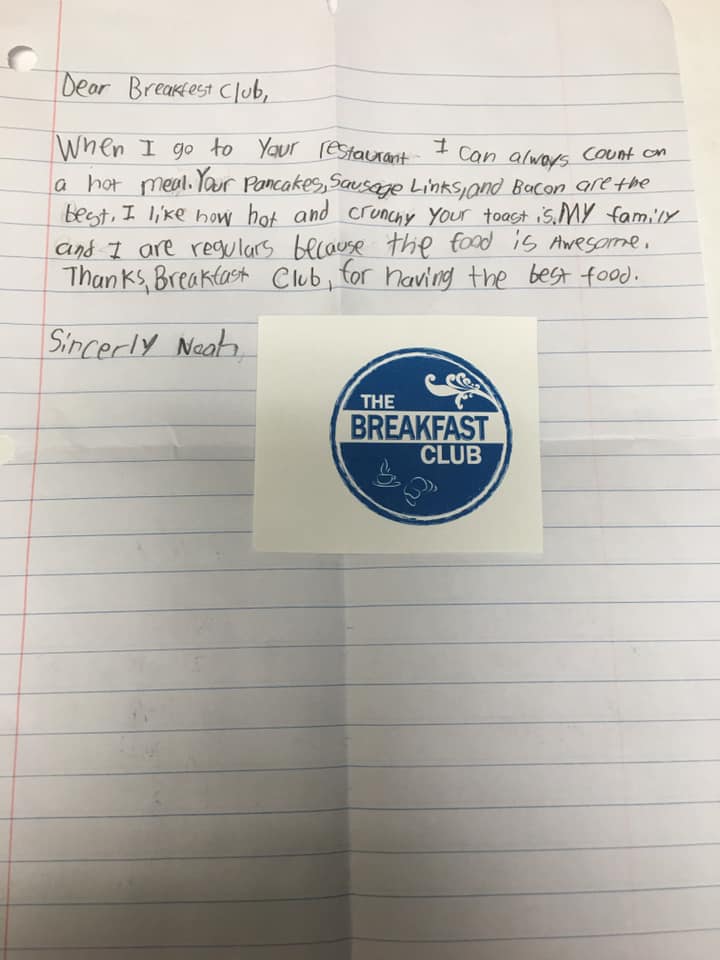 Dear Breakfest Club,
When I go to Your restaurant I can always count on
a hot meal. Your Pancakes, Sausage Links, and Bacon are the
best. I like how hot and crunchy your toast is. MY family
and I are regulars because the food is Awesome.
Thanks, Breakfast Club, for having the best food.
Sincerly Noah
THE
BREAKFAST
CLUB